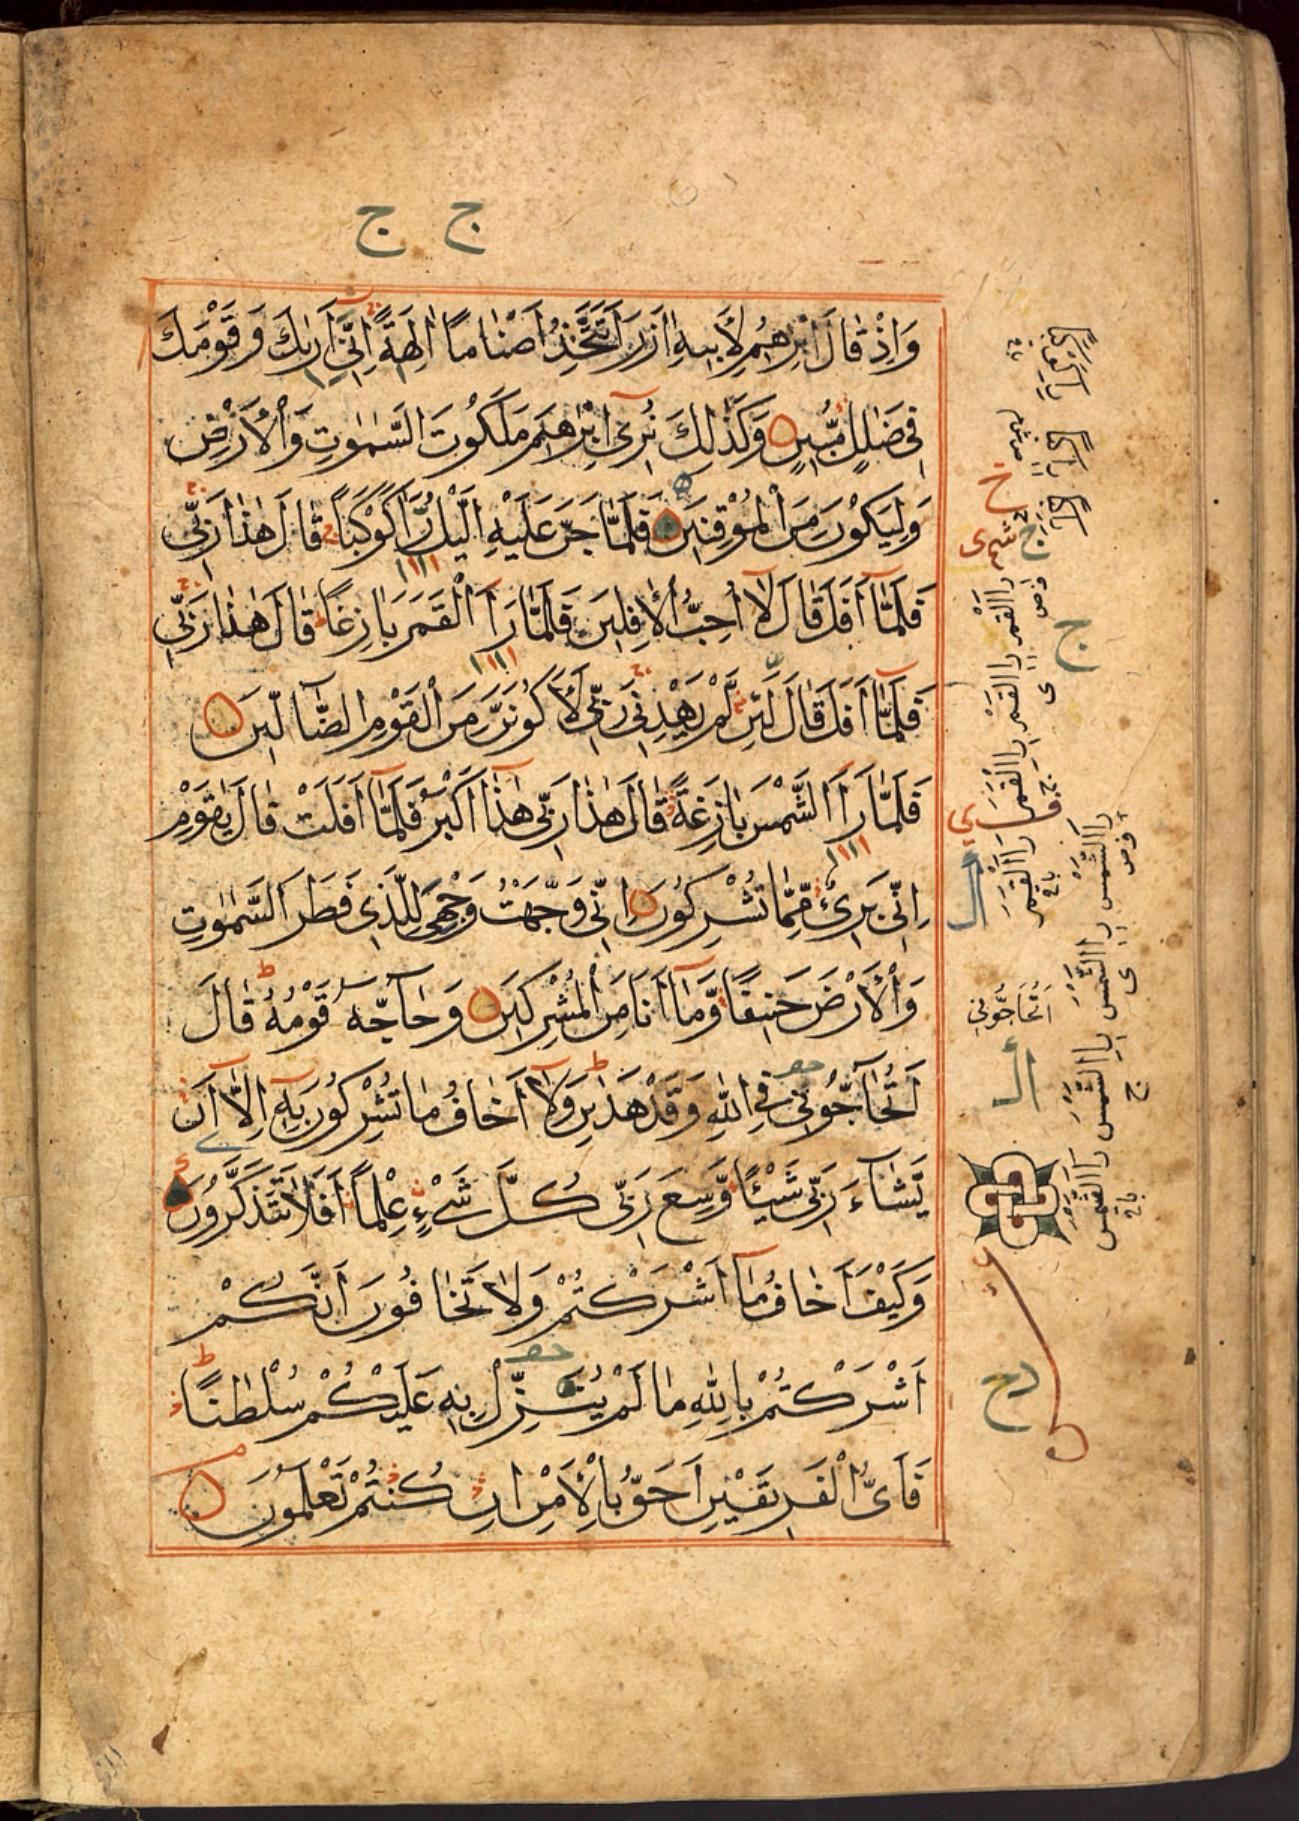 ج ج
وَاِذْ قَالَ اِبْرٰهِيْمُ لِاَبِيْهِ اٰزَرَ اَتَتَّخِذُ اَصْنَامًا اٰلِهَةً اِنِّيْٓ اَرٰىكَ وَقَوْمَكَ
فِيْ ضَلٰلٍ مُّبِيْنٍ وَكَذٰلِكَ نُرِيْٓ اِبْرٰهِيْمَ مَلَكُوْتَ السَّمٰوٰتِ وَالْاَرْضِ
وَلِيَكُوْنَ مِنَ الْمُوْقِنِيْنَ فَلَمَّا جَنَّ عَلَيْهِ الَّيْلُ رَاٰ كَوْكَبًا قَالَ هٰذَا رَبِّيْ
فَلَمَّآ اَفَلَ قَالَ لَآ اُحِبُّ الْاٰفِلِيْنَ فَلَمَّا رَاَ الْقَمَرَ بَازِغًا قَالَ هٰذَا رَبِّيْ
فَلَمَّآ اَفَلَ قَالَ لَئِنْ لَّمْ يَهْدِنِيْ رَبِّيْ لَاَكُوْنَنَّ مِنَ الْقَوْمِ الضَّآلِّيْنَ
فَلَمَّا رَاَ الشَّمْسَ بَازِغَةً قَالَ هٰذَا رَبِّيْ هٰذَآ اَكْبَرُ فَلَمَّآ اَفَلَتْ قَالَ يٰقَوْمِ
اِنِّيْ بَرِيْٓءٌ مِّمَّا تُشْرِكُوْنَ اِنِّيْ وَجَّهْتُ وَجْهِيَ لِلَّذِيْ فَطَرَ السَّمٰوٰتِ
وَالْاَرْضَ حَنِيْفًا وَّمَآ اَنَا مِنَ الْمُشْرِكِيْنَ وَحَآجَّهٗ قَوْمُهٗ قَالَ
اَتُحَآجُّوْنِّيْ فِي اللّٰهِ وَقَدْ هَدٰىنِ وَلَآ اَخَافُ مَا تُشْرِكُوْنَ بِهٖٓ اِلَّآ اَنْ
يَّشَآءَ رَبِّيْ شَيْـًٔا وَّسِعَ رَبِّيْ كُلَّ شَيْءٍ عِلْمًا اَفَلَا تَتَذَكَّرُوْنَ
وَكَيْفَ اَخَافُ مَآ اَشْرَكْتُمْ وَلَا تَخَافُوْنَ اَنَّكُمْ
اَشْرَكْتُمْ بِاللّٰهِ مَا لَمْ يُنَزِّلْ بِهٖ عَلَيْكُمْ سُلْطٰنًا
فَاَيُّ الْفَرِيْقَيْنِ اَحَقُّ بِالْاَمْنِ اِنْ كُنْتُمْ تَعْلَمُوْنَ
ج
ج
رَاَ الْقَمَرَ
رَاَ الشَّمْسَ
اَتُحَاجُّوْنِي